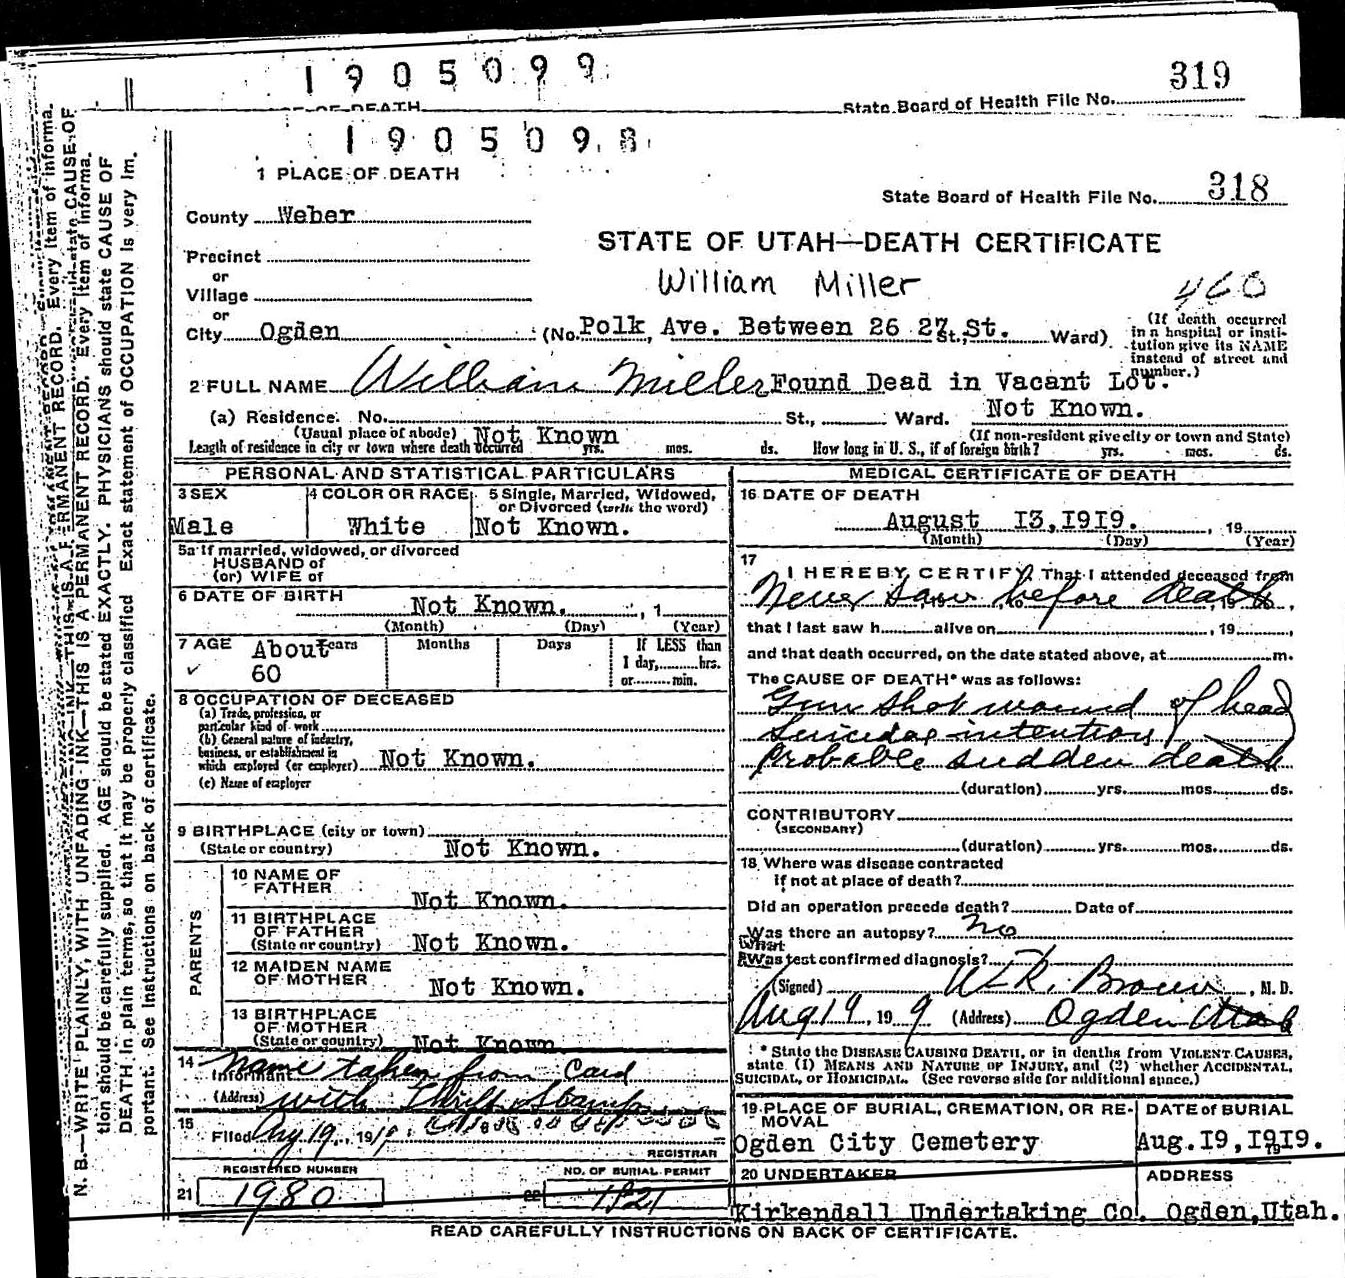 1905099
319
OF DEATH
State Board of Health File No.
1905098
1 PLACE OF DEATH
State Board of Health File No. 318
County Weber
STATE OF UTAH—DEATH CERTIFICATE
Precinct
or
William Miller
Village
460
or
City Ogden (No. Polk Ave. Between 26 27 St. St., Ward)
(If death occurred in a hospital or insti-
tution give its NAME
instead of street and
number.)
2 FULL NAME William Miller Found Dead in Vacant Lot.
(a) Residence. No. St., Ward. Not Known.
(Usual place of abode) (If non-resident give city or town and State)
Length of residence in city or town where death occurred Not Known yrs. mos. ds. How long in U. S., if of foreign birth? yrs. mos. ds.
PERSONAL AND STATISTICAL PARTICULARS
3 SEX
Male
4 COLOR OR RACE
White
5 Single, Married, Widowed,
or Divorced (write the word)
Not Known.
5a If married, widowed, or divorced
HUSBAND of
(or) WIFE of
6 DATE OF BIRTH Not Known. , 1
(Month) (Day) (Year)
7 AGE About 60 Years Months Days
If LESS than
1 day, hrs.
or min.
8 OCCUPATION OF DECEASED
(a) Trade, profession, or
particular kind of work
(b) General nature of industry,
business, or establishment in
which employed (or employer) Not Known.
(c) Name of employer
9 BIRTHPLACE (city or town)
(State or country) Not Known.
PARENTS
10 NAME OF
FATHER Not Known.
11 BIRTHPLACE
OF FATHER
(State or country) Not Known.
12 MAIDEN NAME
OF MOTHER Not Known.
13 BIRTHPLACE
OF MOTHER
(State or country) Not Known
14 Informant Name taken from Card
(Address) with Thrift Stamps
15 Filed Aug 19, 1919
REGISTRAR
REGISTERED NUMBER
NO. OF BURIAL PERMIT
21 1980
22 1821
MEDICAL CERTIFICATE OF DEATH
16 DATE OF DEATH
August 13, 1919. , 19
(Month) (Day) (Year)
17
I HEREBY CERTIFY, That I attended deceased from
Never saw before death , 19
that I last saw h alive on , 19 ,
and that death occurred, on the date stated above, at m.
The CAUSE OF DEATH* was as follows:
Gun shot wound of head
Suicidal intention
Probable sudden death
(duration) yrs. mos. ds.
CONTRIBUTORY
(SECONDARY)
(duration) yrs. mos. ds.
18 Where was disease contracted
if not at place of death?
Did an operation precede death? Date of
Was there an autopsy? no
What
test confirmed diagnosis?
(Signed) Brown, M. D.
Aug 19, 19 9 (Address) Ogden Utah
* State the DISEASE CAUSING DEATH, or in deaths from VIOLENT CAUSES,
state (1) MEANS AND NATURE OF INJURY, and (2) whether ACCIDENTAL,
SUICIDAL, or HOMICIDAL. (See reverse side for additional space.)
19 PLACE OF BURIAL, CREMATION, OR RE-
MOVAL
Ogden City Cemetery
DATE of BURIAL
Aug. 19, 1919.
20 UNDERTAKER
Kirkendall Undertaking Co.
ADDRESS
Ogden, Utah.
READ CAREFULLY INSTRUCTIONS ON BACK OF CERTIFICATE.
N. B.—WRITE PLAINLY, WITH UNFADING INK—THIS IS A PERMANENT RECORD. Every item of informa-
tion should be carefully supplied. AGE should be stated EXACTLY. PHYSICIANS should state CAUSE OF
DEATH in plain terms, so that it may be properly classified Exact statement of OCCUPATION is very im-
portant. See instructions on back of certificate.